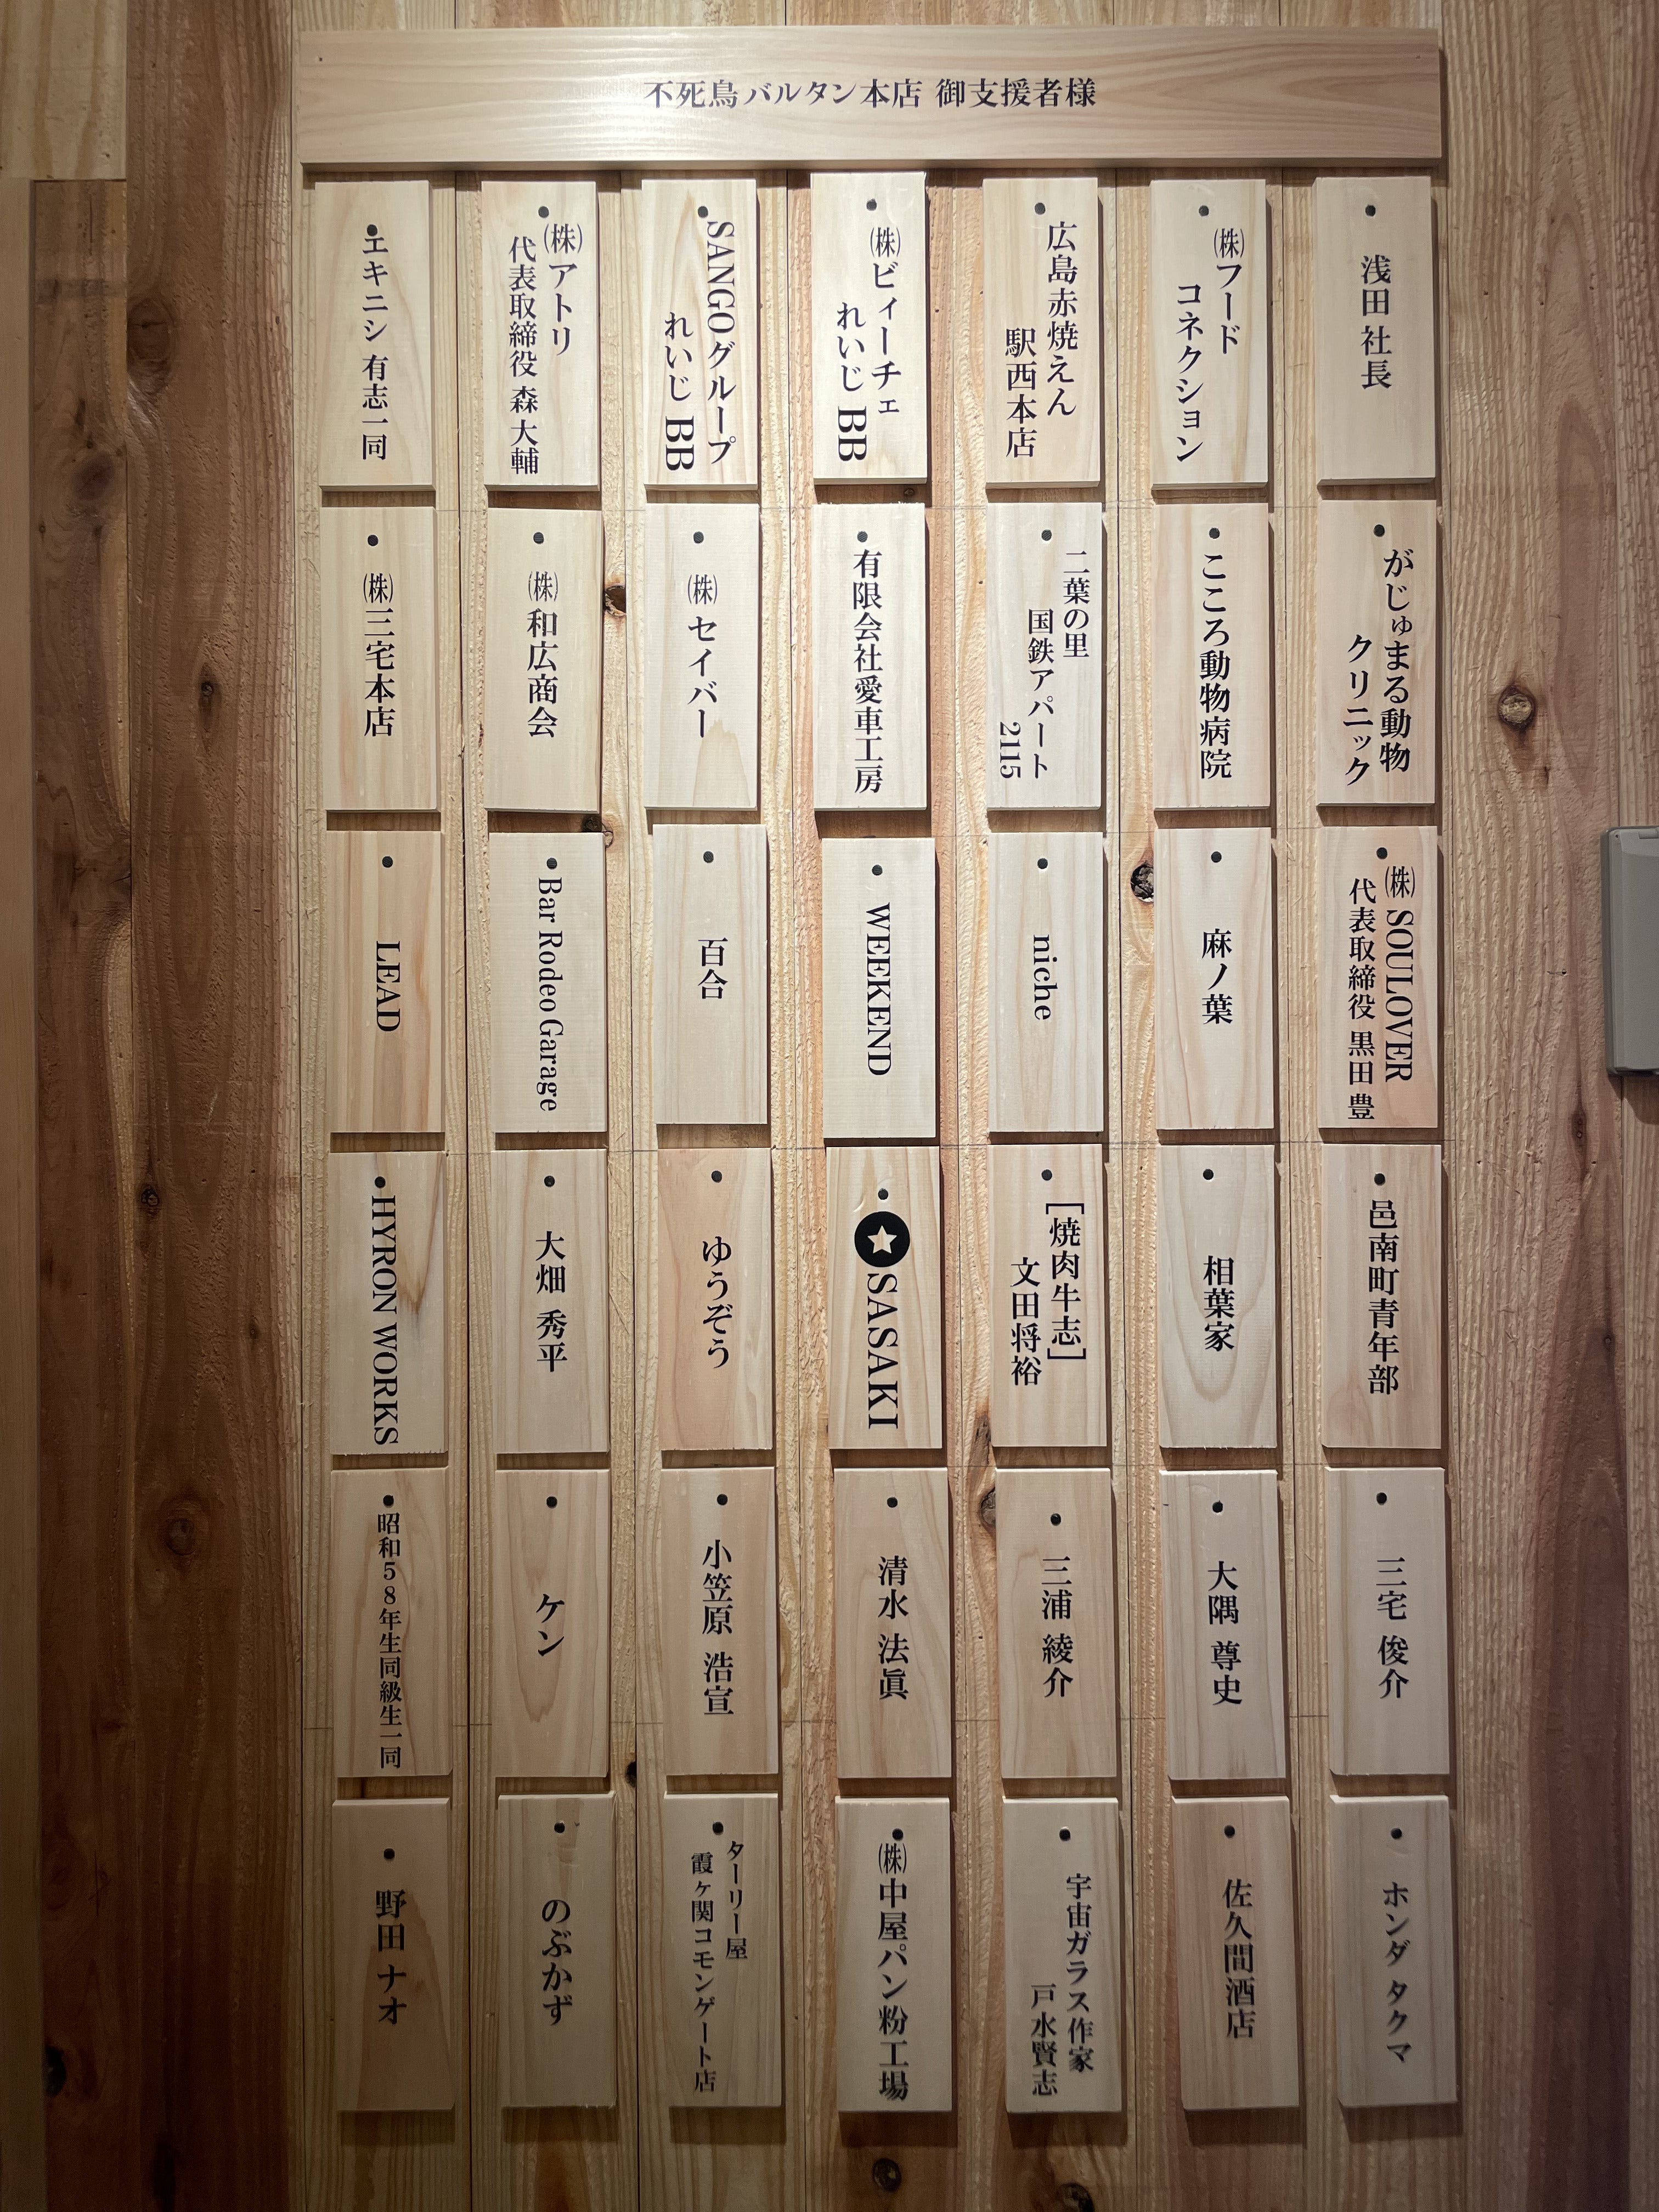 不死鳥バルタン本店 御支援者様
浅田 社長
㈱フード
コネクション
広島赤焼えん
駅西本店
㈱ビィーチェ
れいじ BB
SANGOグループ
れいじ BB
㈱アトリ
代表取締役 森 大輔
エキニシ 有志一同
がじゅまる動物
クリニック
こころ動物病院
二葉の里
国鉄アパート
2115
有限会社愛車工房
㈱セイバー
㈱和広商会
㈱三宅本店
㈱SOULOVER
代表取締役 黒田 豊
麻ノ葉
niche
WEEKEND
百合
Bar Rodeo Garage
LEAD
邑南町青年部
相葉家
[焼肉牛志]
文田将裕
SASAKI
ゆうぞう
大畑 秀平
HYRON WORKS
三宅 俊介
大隅 尊史
三浦 綾介
清水 法眞
小笠原 浩宣
ケン
昭和58年生同級生一同
ホンダ タクマ
佐久間酒店
宇宙ガラス作家
戸水賢志
㈱中屋パン粉工場
ターリー屋
霞ヶ関コモンゲート店
のぶかず
野田 ナオ